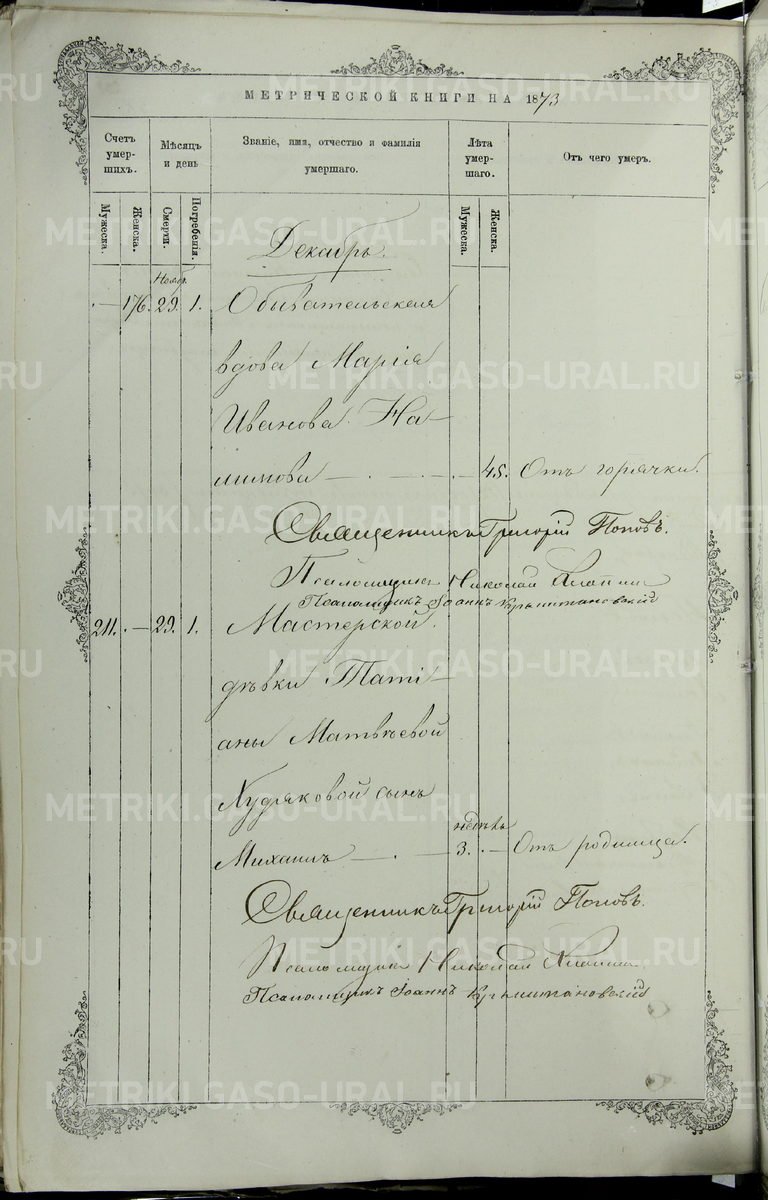 МЕТРИЧЕСКОЙ КНИГИ НА 1873
Счетъ умер- шихъ.
Мѣсяцъ и день
Званіе, имя, отчество и фамилія умершаго.
Лѣта умер- шаго.
Отъ чего умеръ.
Мужеска.
Женска.
Смерти.
Погребенія.
Мужеска.
Женска.
Декабрь.
Нояб.
— 176. 29. 1. Обывательская
вдова Марія
Иванова На-
лимова — 45. Отъ горячки.
Священникъ Григорій Поповъ.
Псаломщикъ Николай
Псаломщикъ Іоаннъ
211. — 29. 1. Мастерской
дѣвки Таті-
аны Матвѣевой
Худяковой сынъ
недѣль
Михаилъ — 3. — Отъ родимца.
Священникъ Григорій Поповъ.
Псаломщикъ Николай
Псаломщикъ Іоаннъ
METRIKI.GASO-URAL.RU